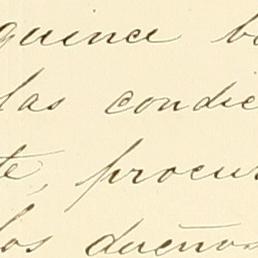 quince b
las condic
te, procur
los dueños